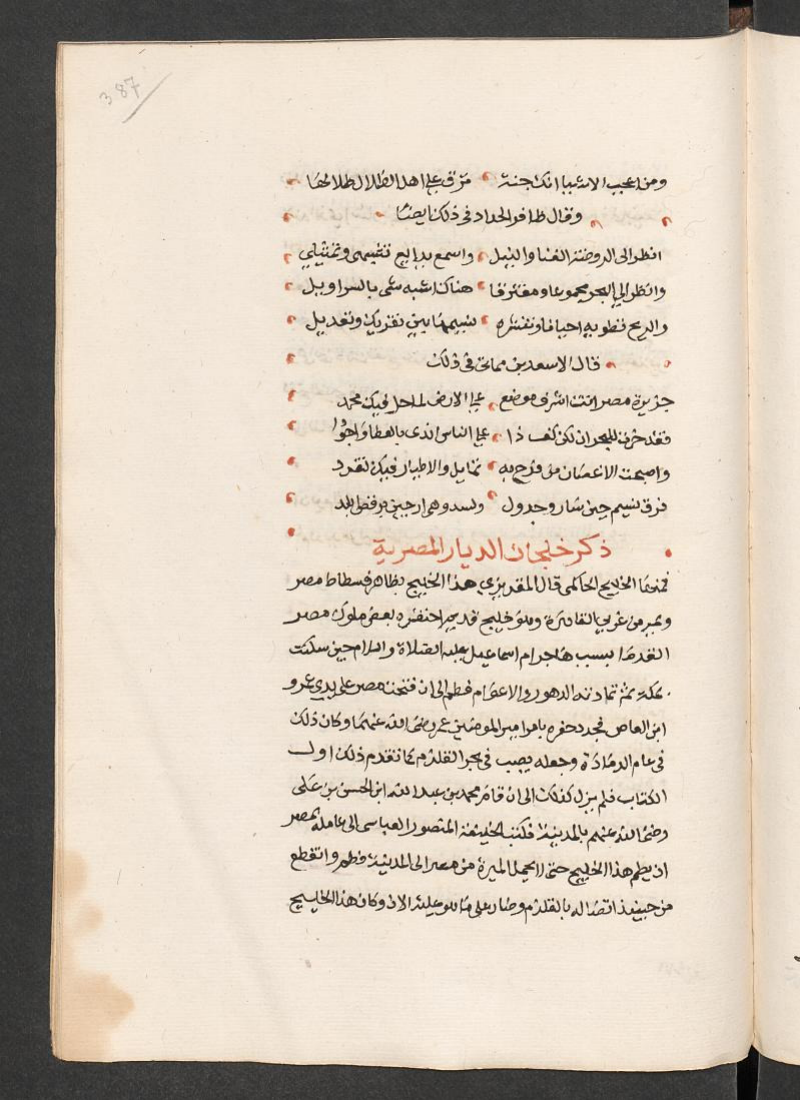 387
ومن اعجب الاشيا انك جنة مرق على اهل الضلال ظلالها
وقال ظافر الحداد في ذلك ايضا
انظر الى الروضة الغنا والنيل واسمع بدايع تشبيهي وتمثيلي
وانظر الى البحر مجموعا ومفترقا هناك اشبه شي بالسراويل
والريح تطويه احيانا وتنشره نسيمها بين تفريك وتعديل
قال الاسعد بن مماتي في ذلك
جزيرة مصر انت اشرف موضع على الارض لما حل فيك محمد
فقد حزت البحران لكن كف ذا على الناس اندى بالعطا واجود
واصبحت الاغصان من فرح به تمايل والاطيار فيك تغرد
فرق نسيم حين سار وجدول
ذكر خلجان الديار المصرية
فمنها الخليج الحاكمى قال المقريزي هذا الخليج بظاهر فسطاط مصر
ويمر من غربي القاهرة وهو خليج قديم احتفره بعض ملوك مصر
القدما بسبب هاجر ام اسماعيل عليه الصلاة والسلام حين سكنت
مكة ثم تمادته الدهور والاعوام فطم الى ان فتحت مصر على يدي عمرو
ابن العاص فجدد حفره بامر امير المومنين عمر رضى الله عنهما وكان ذلك
فى عام الرمادة وجعله يصب في بحر القلزم كما تقدم ذلك اول
الكتاب فلم يزل كذلك الى ان قام محمد بن عبد الله ابن الحسن بن على
رضى الله عنهم بالمدينة فكتب الخليفة المنصور العباسى الى عامله بمصر
ان يطم هذا الخليج حتى لا يحمل الميرة من مصر الى المدينة فطم وانقطع
من حينيذ اتصاله بالقلزم وصار على ما هو عليه الان وكان هذا الخليج